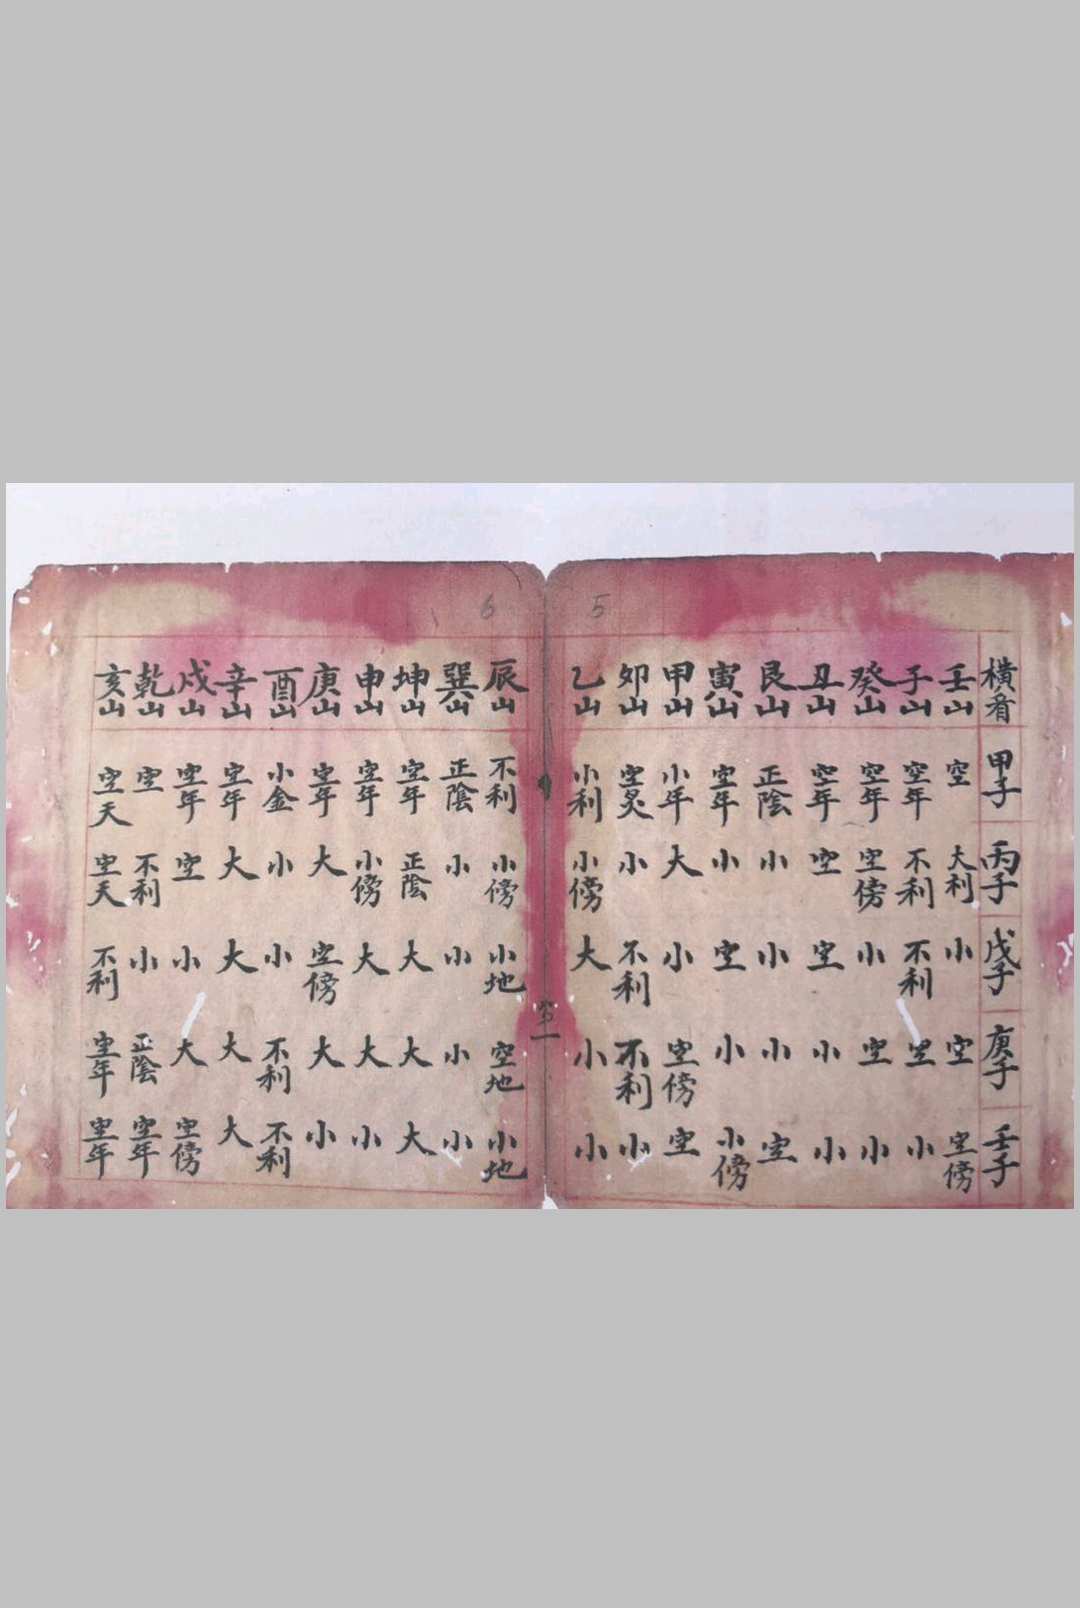 6 5
橫看 壬山 子山 癸山 丑山 艮山 寅山 甲山 卯山 乙山 辰山 巽山 坤山 申山 庚山 酉山 辛山 戌山 乾山 亥山
甲子 空 空年 空年 空年 正陰 空年 小年 空炙 小利 不利 正陰 空年 空年 空年 小金 空年 空年 空 空天
丙子 大利 不利 空傍 空 小 小 大 小 小傍 小傍 小 正陰 小傍 大 小 大 空 不利 空天
戊子 小 不利 小 空 小 空 小 不利 大 小地 小 大 大 空傍 小 大 小 小 不利
庚子 空 空 空 小 小 小 空傍 不利 小 空地 小 大 大 大 不利 大 大 正陰 空年
壬子 空傍 小 小 小 空 小傍 空 小 小 小地 小 大 小 小 不利 大 空傍 空年 空年